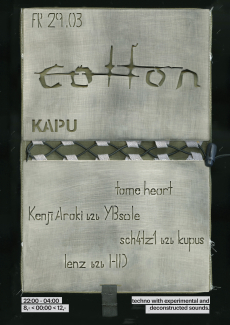 FR 29.03
cotton
KAPU
tame heart
Kenji Araki b2b YBsole
sch4lz1 b2b kupus
lenz b2b I-IID
22:00 - 04:00
8,- < 00:00 < 12,-
techno with experimental and
deconstructed sounds.